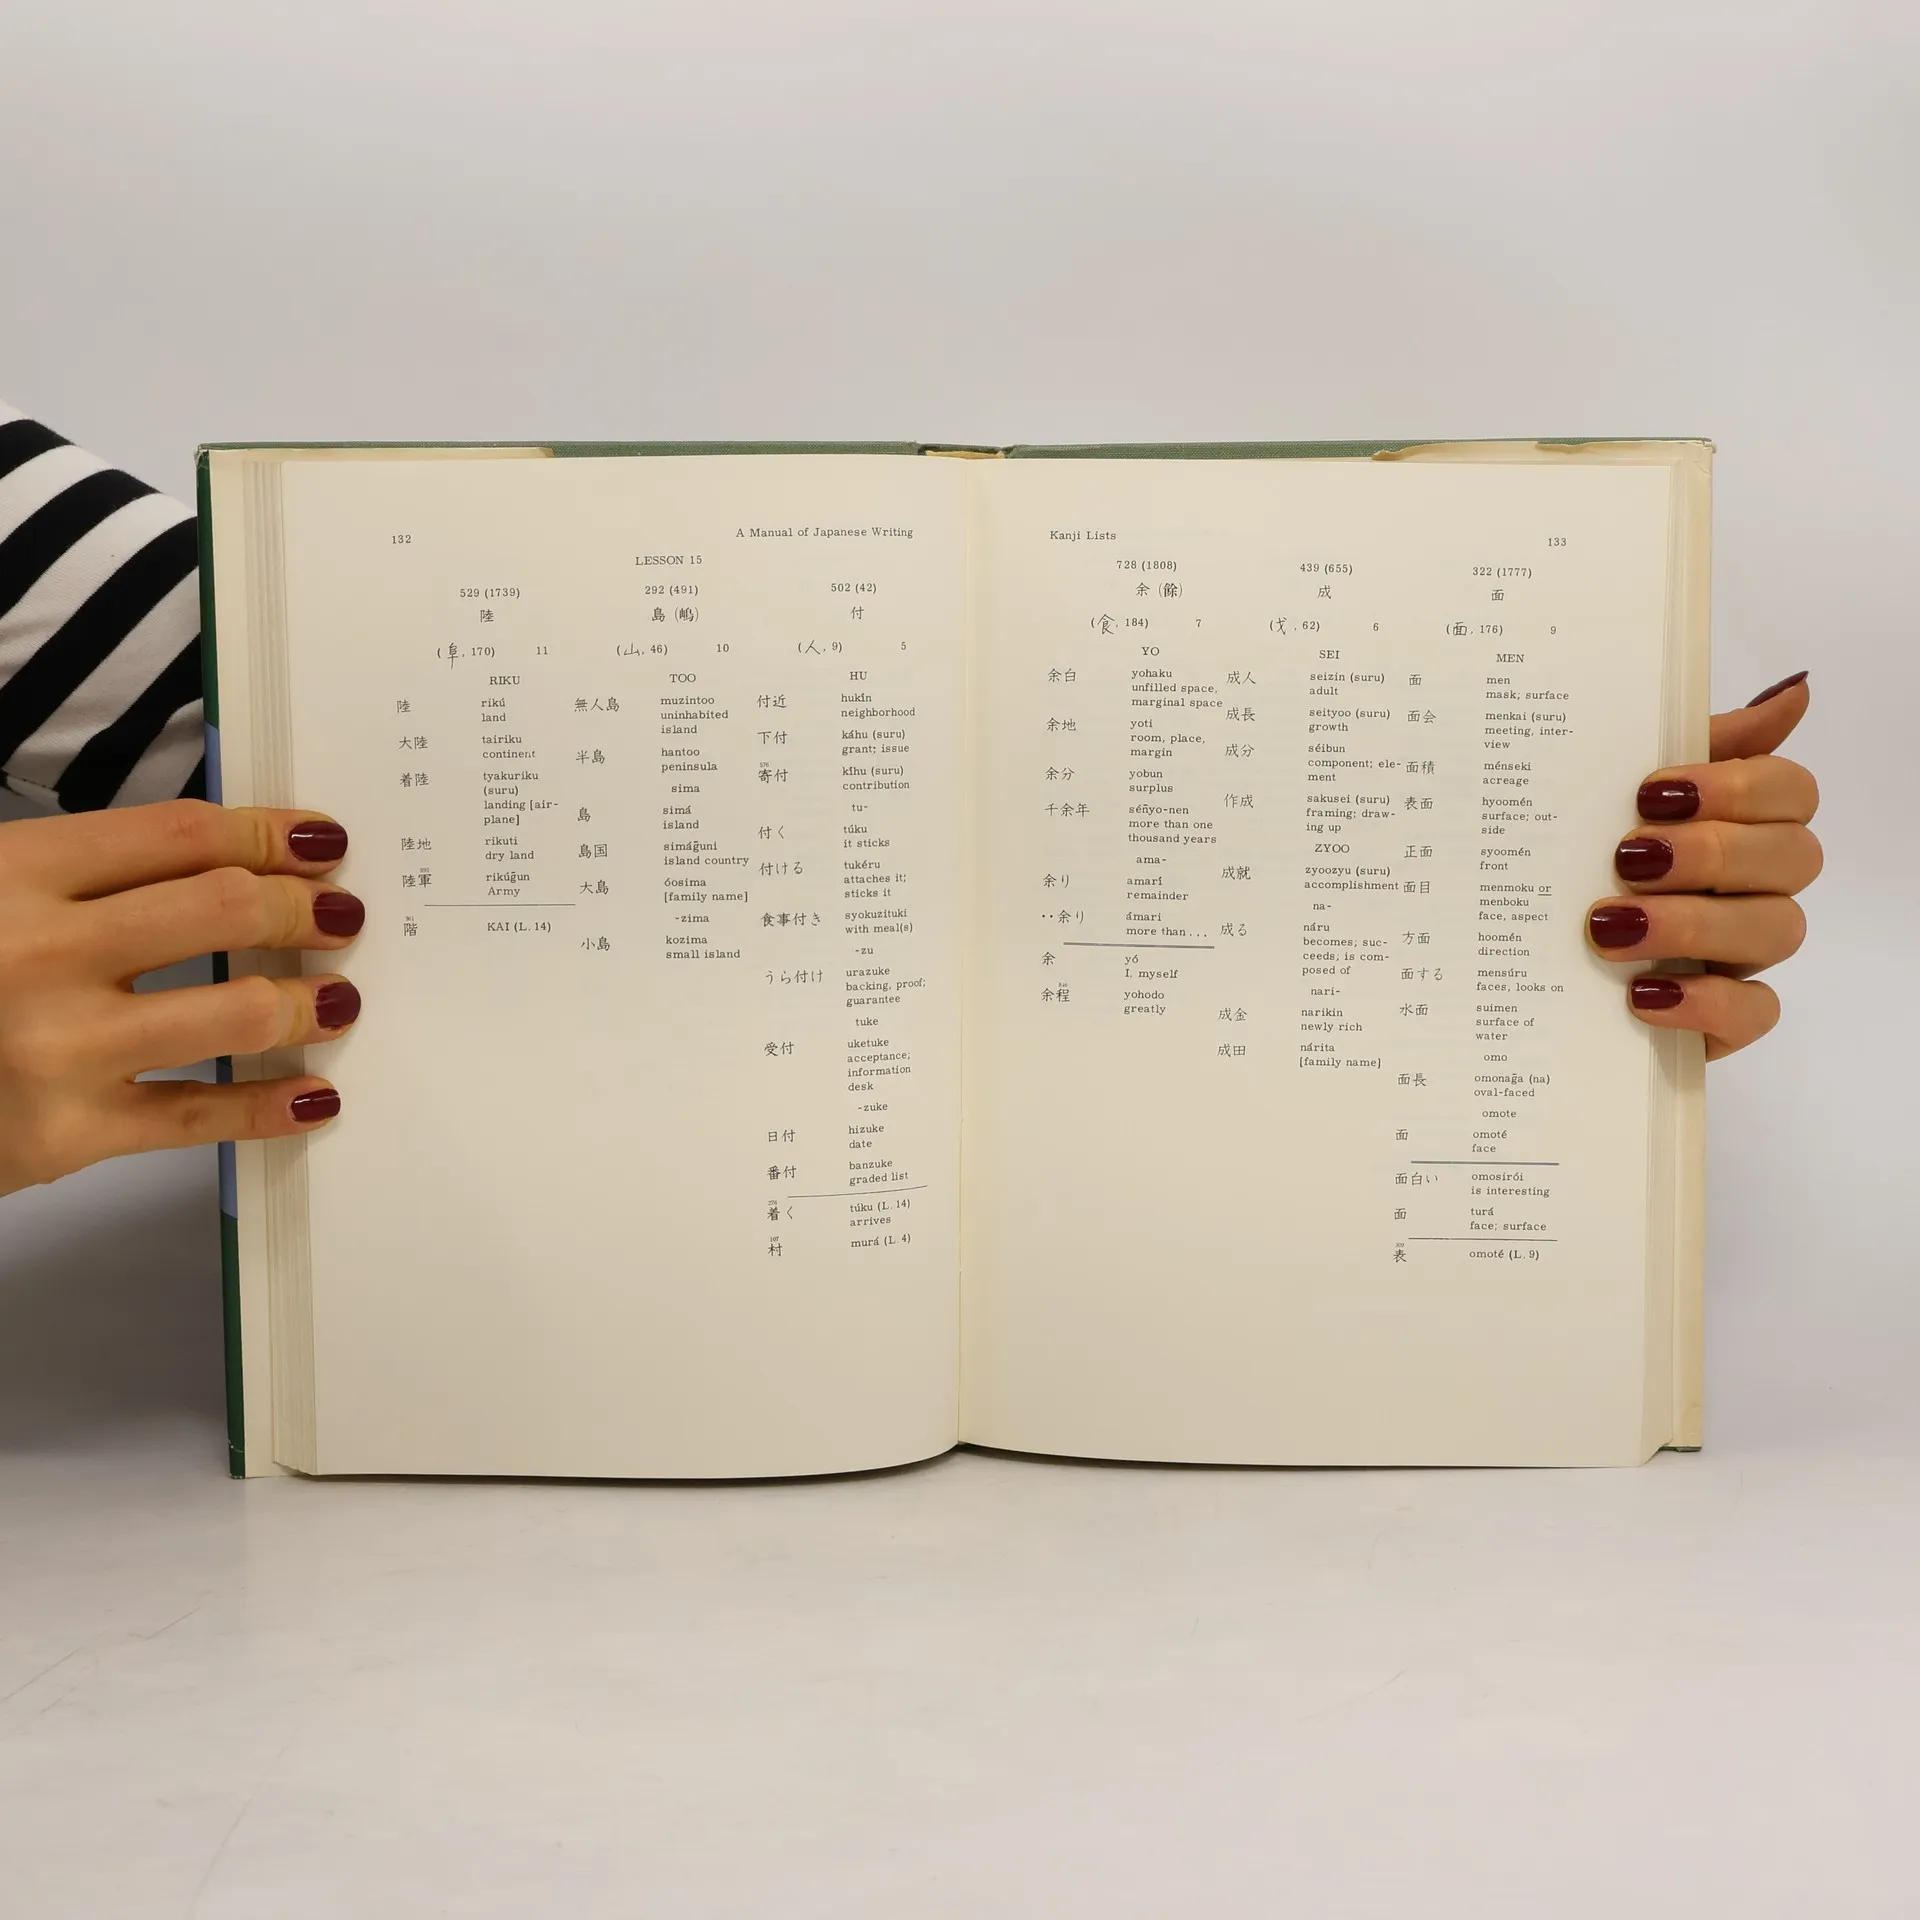 132
A Manual of Japanese Writing
LESSON 15
529 (1739)
陸
(阜, 170) 11
RIKU
陸 rikú
land
大陸 tairiku
continent
着陸 tyakuriku
(suru)
landing [air-
plane]
陸地 rikuti
dry land
陸軍 rikúg̃un
Army
階 KAI (L. 14)
292 (491)
島 (嶋)
(山, 46) 10
TOO
無人島 muzintoo
uninhabited
island
半島 hantoo
peninsula
sima
島 simá
island
島国 simág̃uni
island country
大島 óosima
[family name]
-zima
小島 kozima
small island
502 (42)
付
(人, 9) 5
HU
付近 hukín
neighborhood
下付 káhu (suru)
grant; issue
576
寄付 kíhu (suru)
contribution
tu-
付く túku
it sticks
付ける tukéru
attaches it;
sticks it
食事付き syokuzituki
with meal(s)
-zu
うら付け urazuke
backing, proof;
guarantee
tuke
受付 uketuke
acceptance;
information
desk
-zuke
日付 hizuke
date
番付 banzuke
graded list
276
着く túku (L. 14)
arrives
107
村 murá (L. 4)
Kanji Lists
133
728 (1808)
余 (餘)
(食, 184) 7
YO
余白 yohaku
unfilled space,
marginal space
余地 yoti
room, place,
margin
余分 yobun
surplus
千余年 séñyo-nen
more than one
thousand years
ama-
余り amarí
remainder
‥余り ámari
more than . . .
余 yó
I, myself
余程 yohodo
greatly
439 (655)
成
(戈, 62) 6
SEI
成人 seizín (suru)
adult
成長 seityoo (suru)
growth
成分 séibun
component; ele-
ment
作成 sakusei (suru)
framing; draw-
ing up
ZYOO
成就 zyoozyu (suru)
accomplishment
na-
成る náru
becomes; suc-
ceeds; is com-
posed of
nari-
成金 narikin
newly rich
成田 nárita
[family name]
322 (1777)
面
(面, 176) 9
MEN
面 men
mask; surface
面会 menkai (suru)
meeting, inter-
view
面積 ménseki
acreage
表面 hyoomén
surface; out-
side
正面 syoomén
front
面目 menmoku or
menboku
face, aspect
方面 hoomén
direction
面する mensúru
faces, looks on
水面 suimen
surface of
water
omo
面長 omonag̃a (na)
oval-faced
omote
面 omoté
face
面白い omosirói
is interesting
面 turá
face; surface
表 omoté (L. 9)